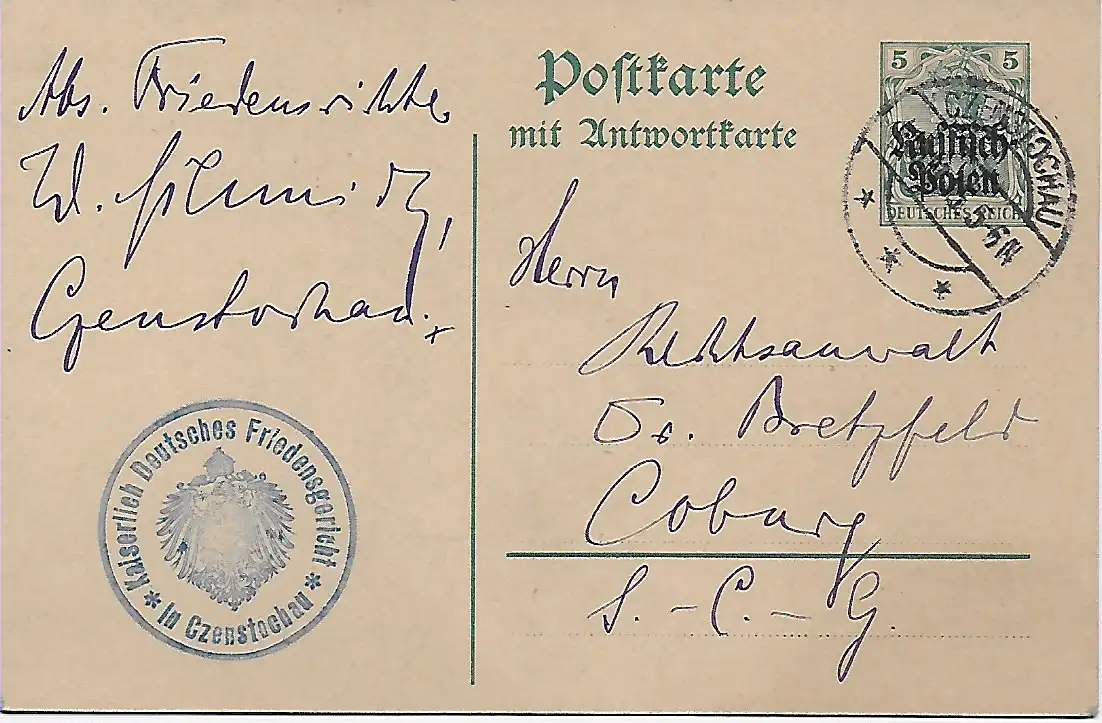 Abs. Friedensrichter
W. Schmidt,
Czenstochau.
Kaiserlich Deutsches Friedensgericht
* in Czenstochau *
Postkarte
mit Antwortkarte
5 5
Russisch
Polen
DEUTSCHES REICH
CZENSTOCHAU
5-6N
Herrn
Rechtsanwalt
Dr. Bretzfeld
Coburg
S. - C. - G.